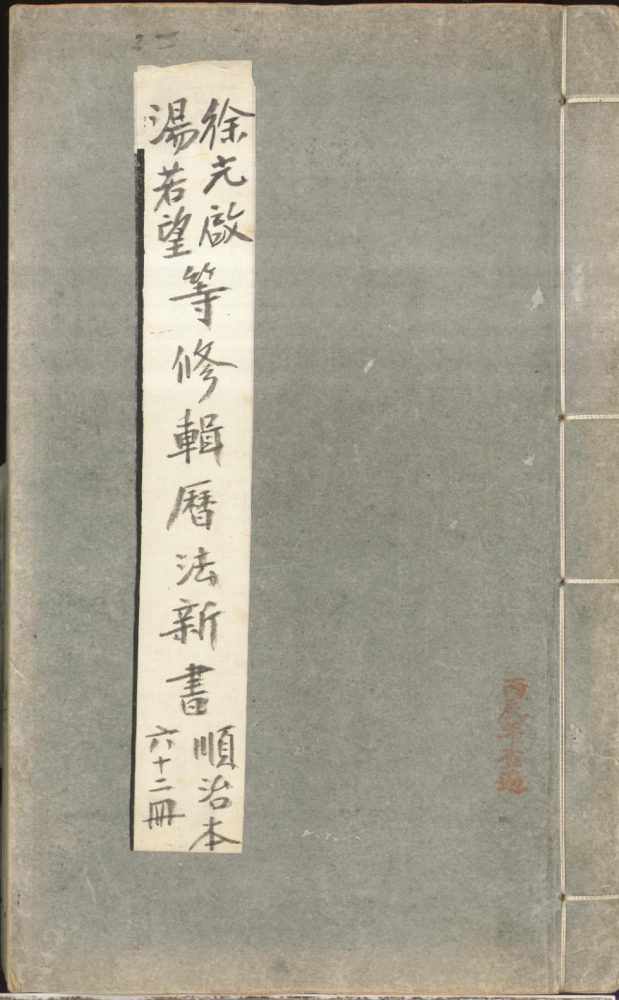 丙辰年查過
徐光啟
湯若望
等修輯曆法新書
順治本
六十二冊